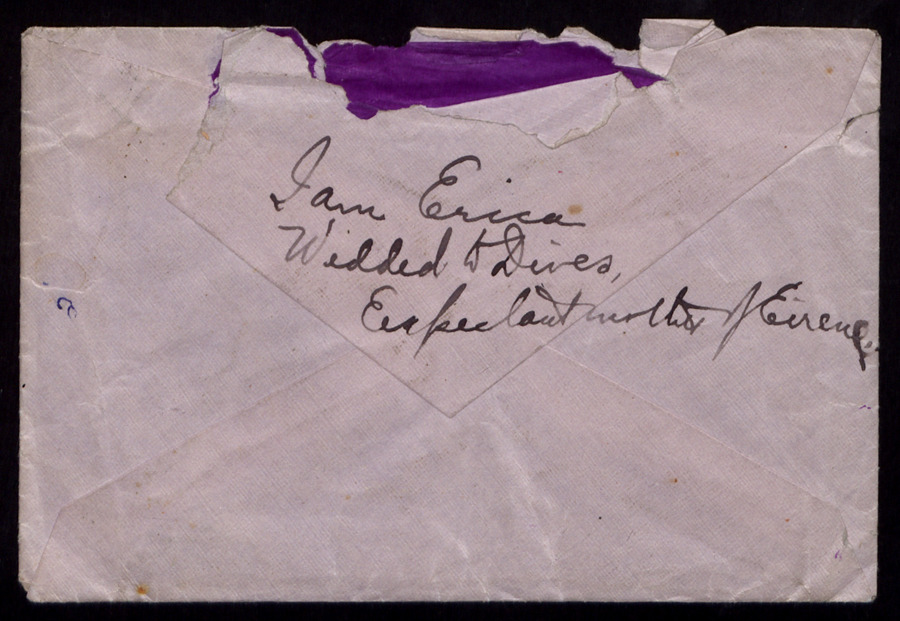 I am Erica
Wedded to Dives,
Expectant mother of Eirene.